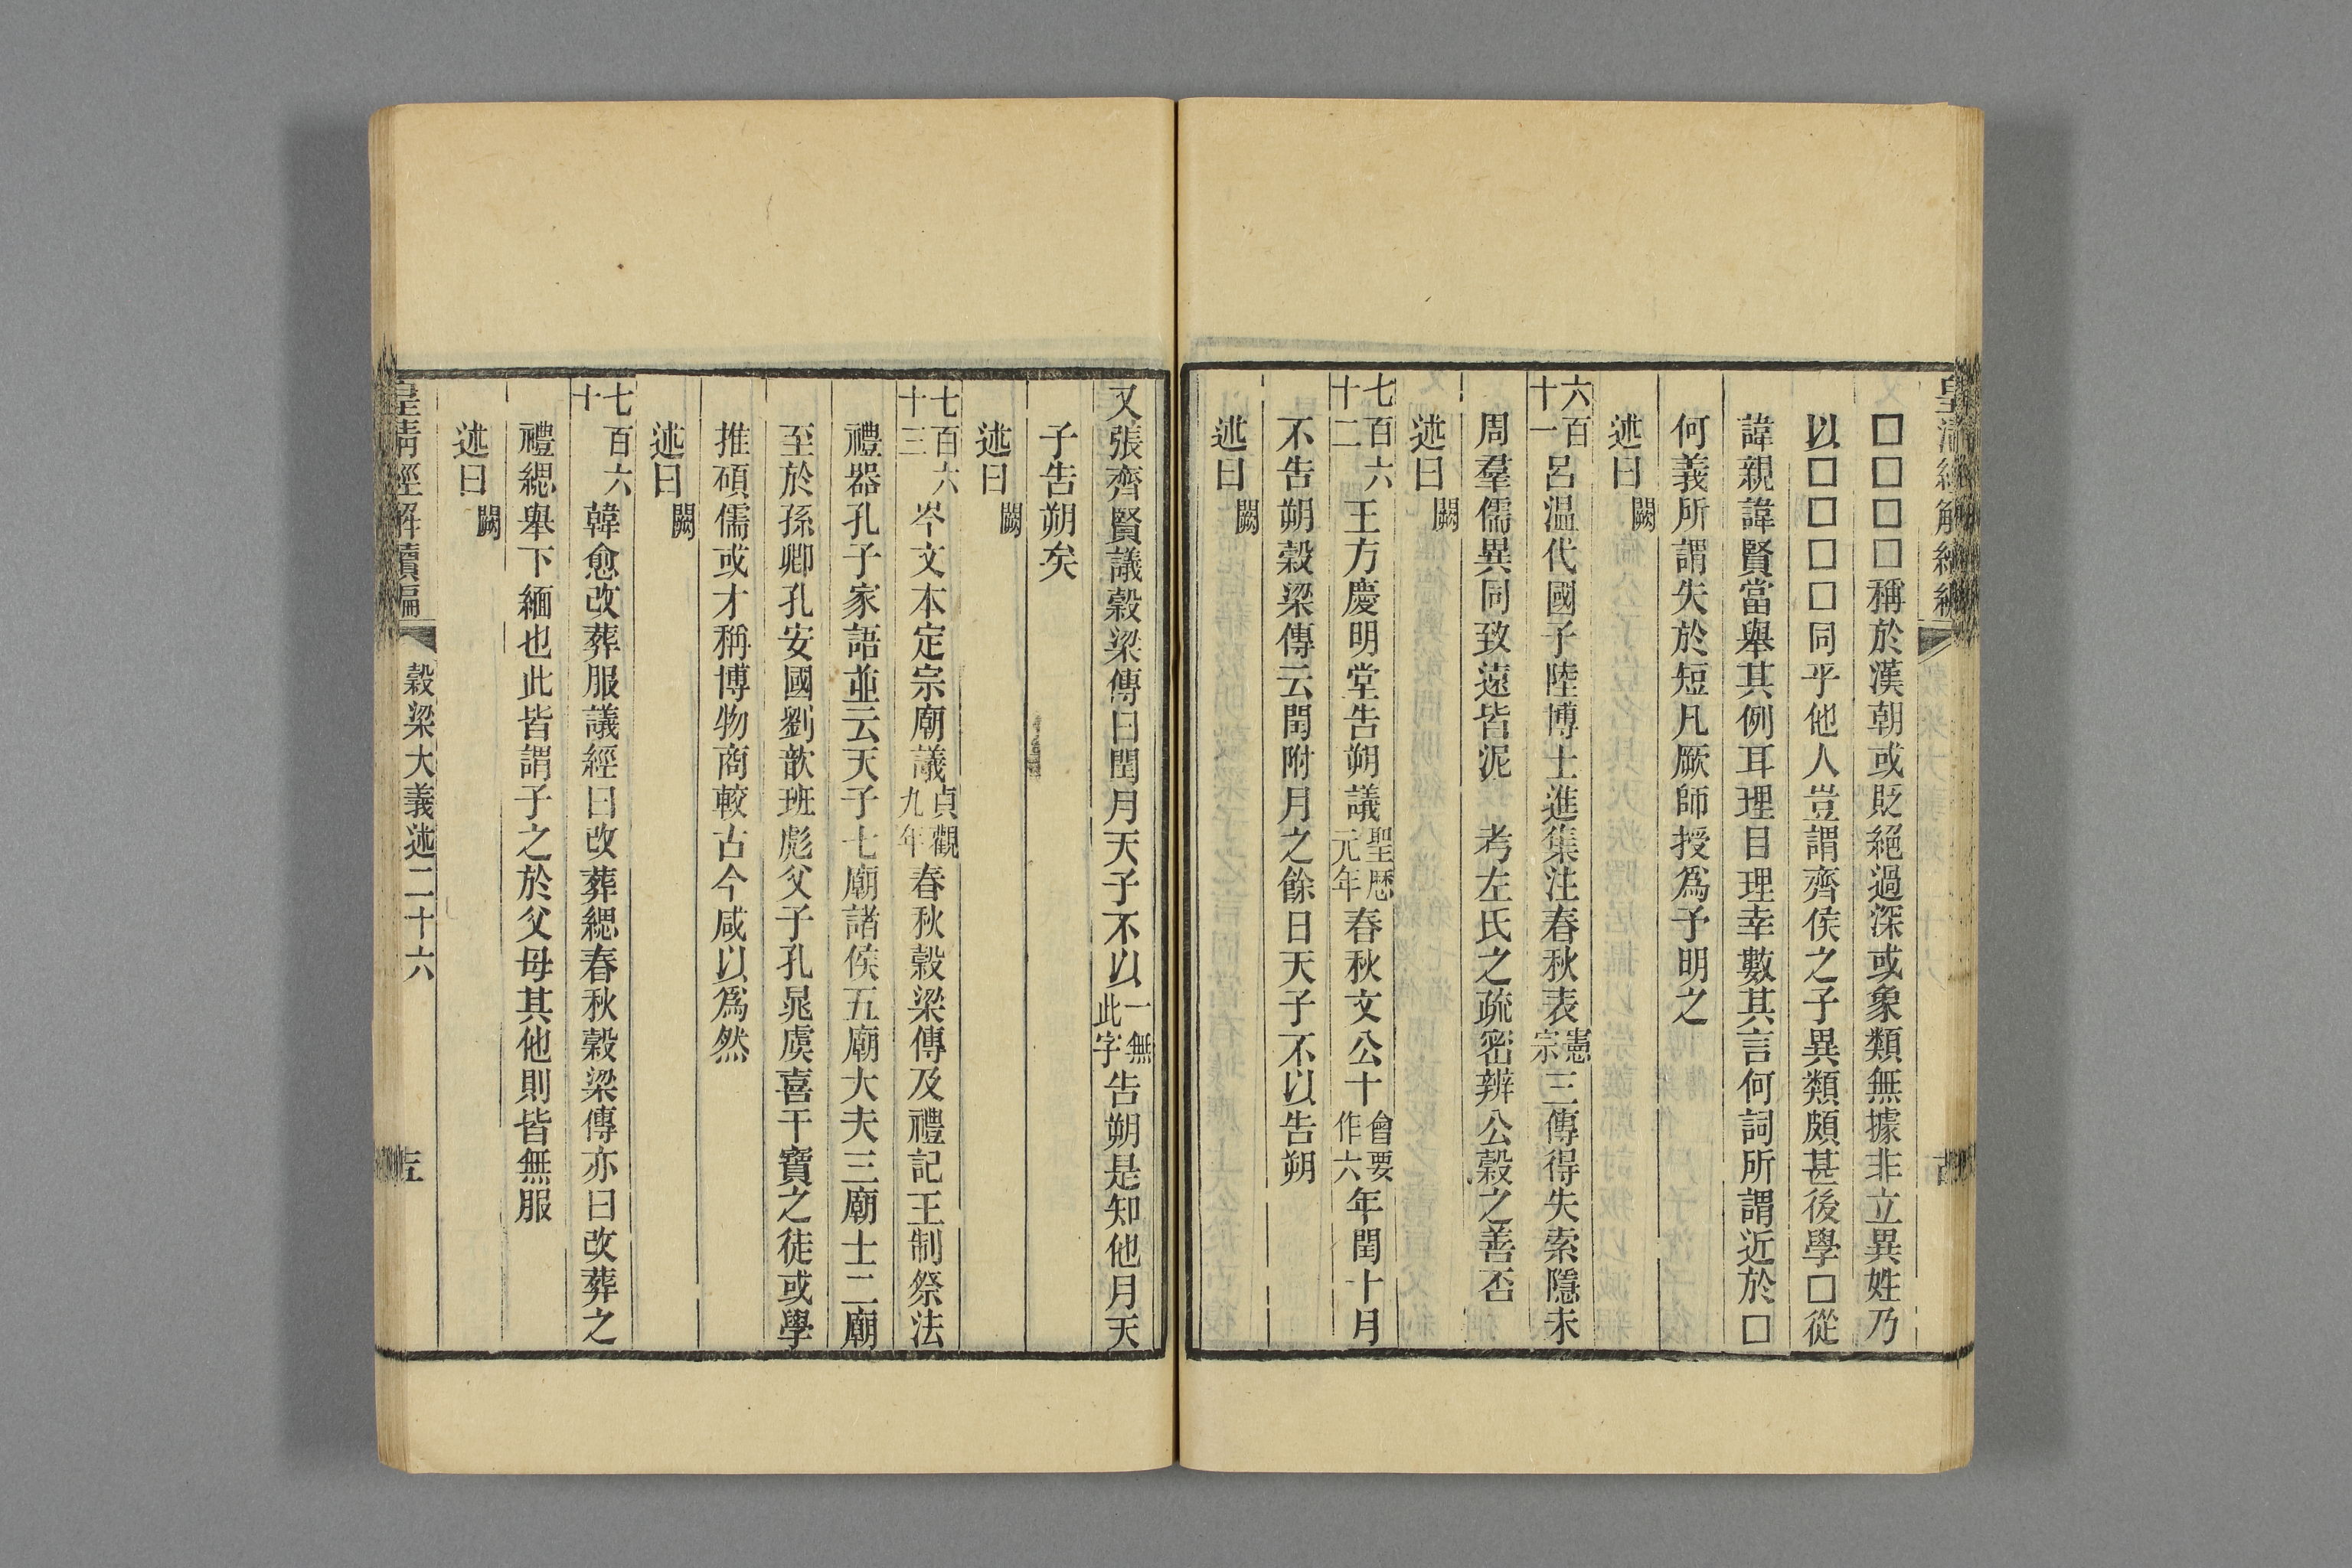 □□□□稱於漢朝或貶絕過深或象類無據非立異姓乃
以□□□□同乎他人豈謂齊侯之子異類頗甚後學□從
諱親諱賢當舉其例耳理日理幸數其言何詞所謂近於□
何義所謂失於短凡厥師授爲予明之
述曰闕
六百一十呂温代國子陸博士進集注春秋表憲宗三傳得失索隱未
周羣儒異同致遠皆泥 考左氏之疏密辨公穀之善否
述曰闕
七百六十二王方慶明堂告朔議聖歷元年春秋文公十會要作六年閏十月
不告朔穀梁傳云閏附月之餘日天子不以告朔
述曰闕
又張齊賢議穀梁傳曰閏月天子不以一無此字告朔是知他月天
子告朔矣
述曰闕
七百六十三岑文本定宗廟議貞觀九年春秋穀梁傳及禮記王制祭法
禮器孔子家語並云天子七廟諸侯五廟大夫三廟士二廟
至於孫卿孔安國劉歆班彪父子孔晁虞喜干寶之徒或學
推碩儒或才稱博物商較古今咸以爲然
述曰闕
七百六十韓愈改葬服議經曰改葬緦春秋穀梁傳亦曰改葬之
禮緦舉下緬也此皆謂子之於父母其他則皆無服
述曰闕
皇清經解續編 穀梁大義述二十六